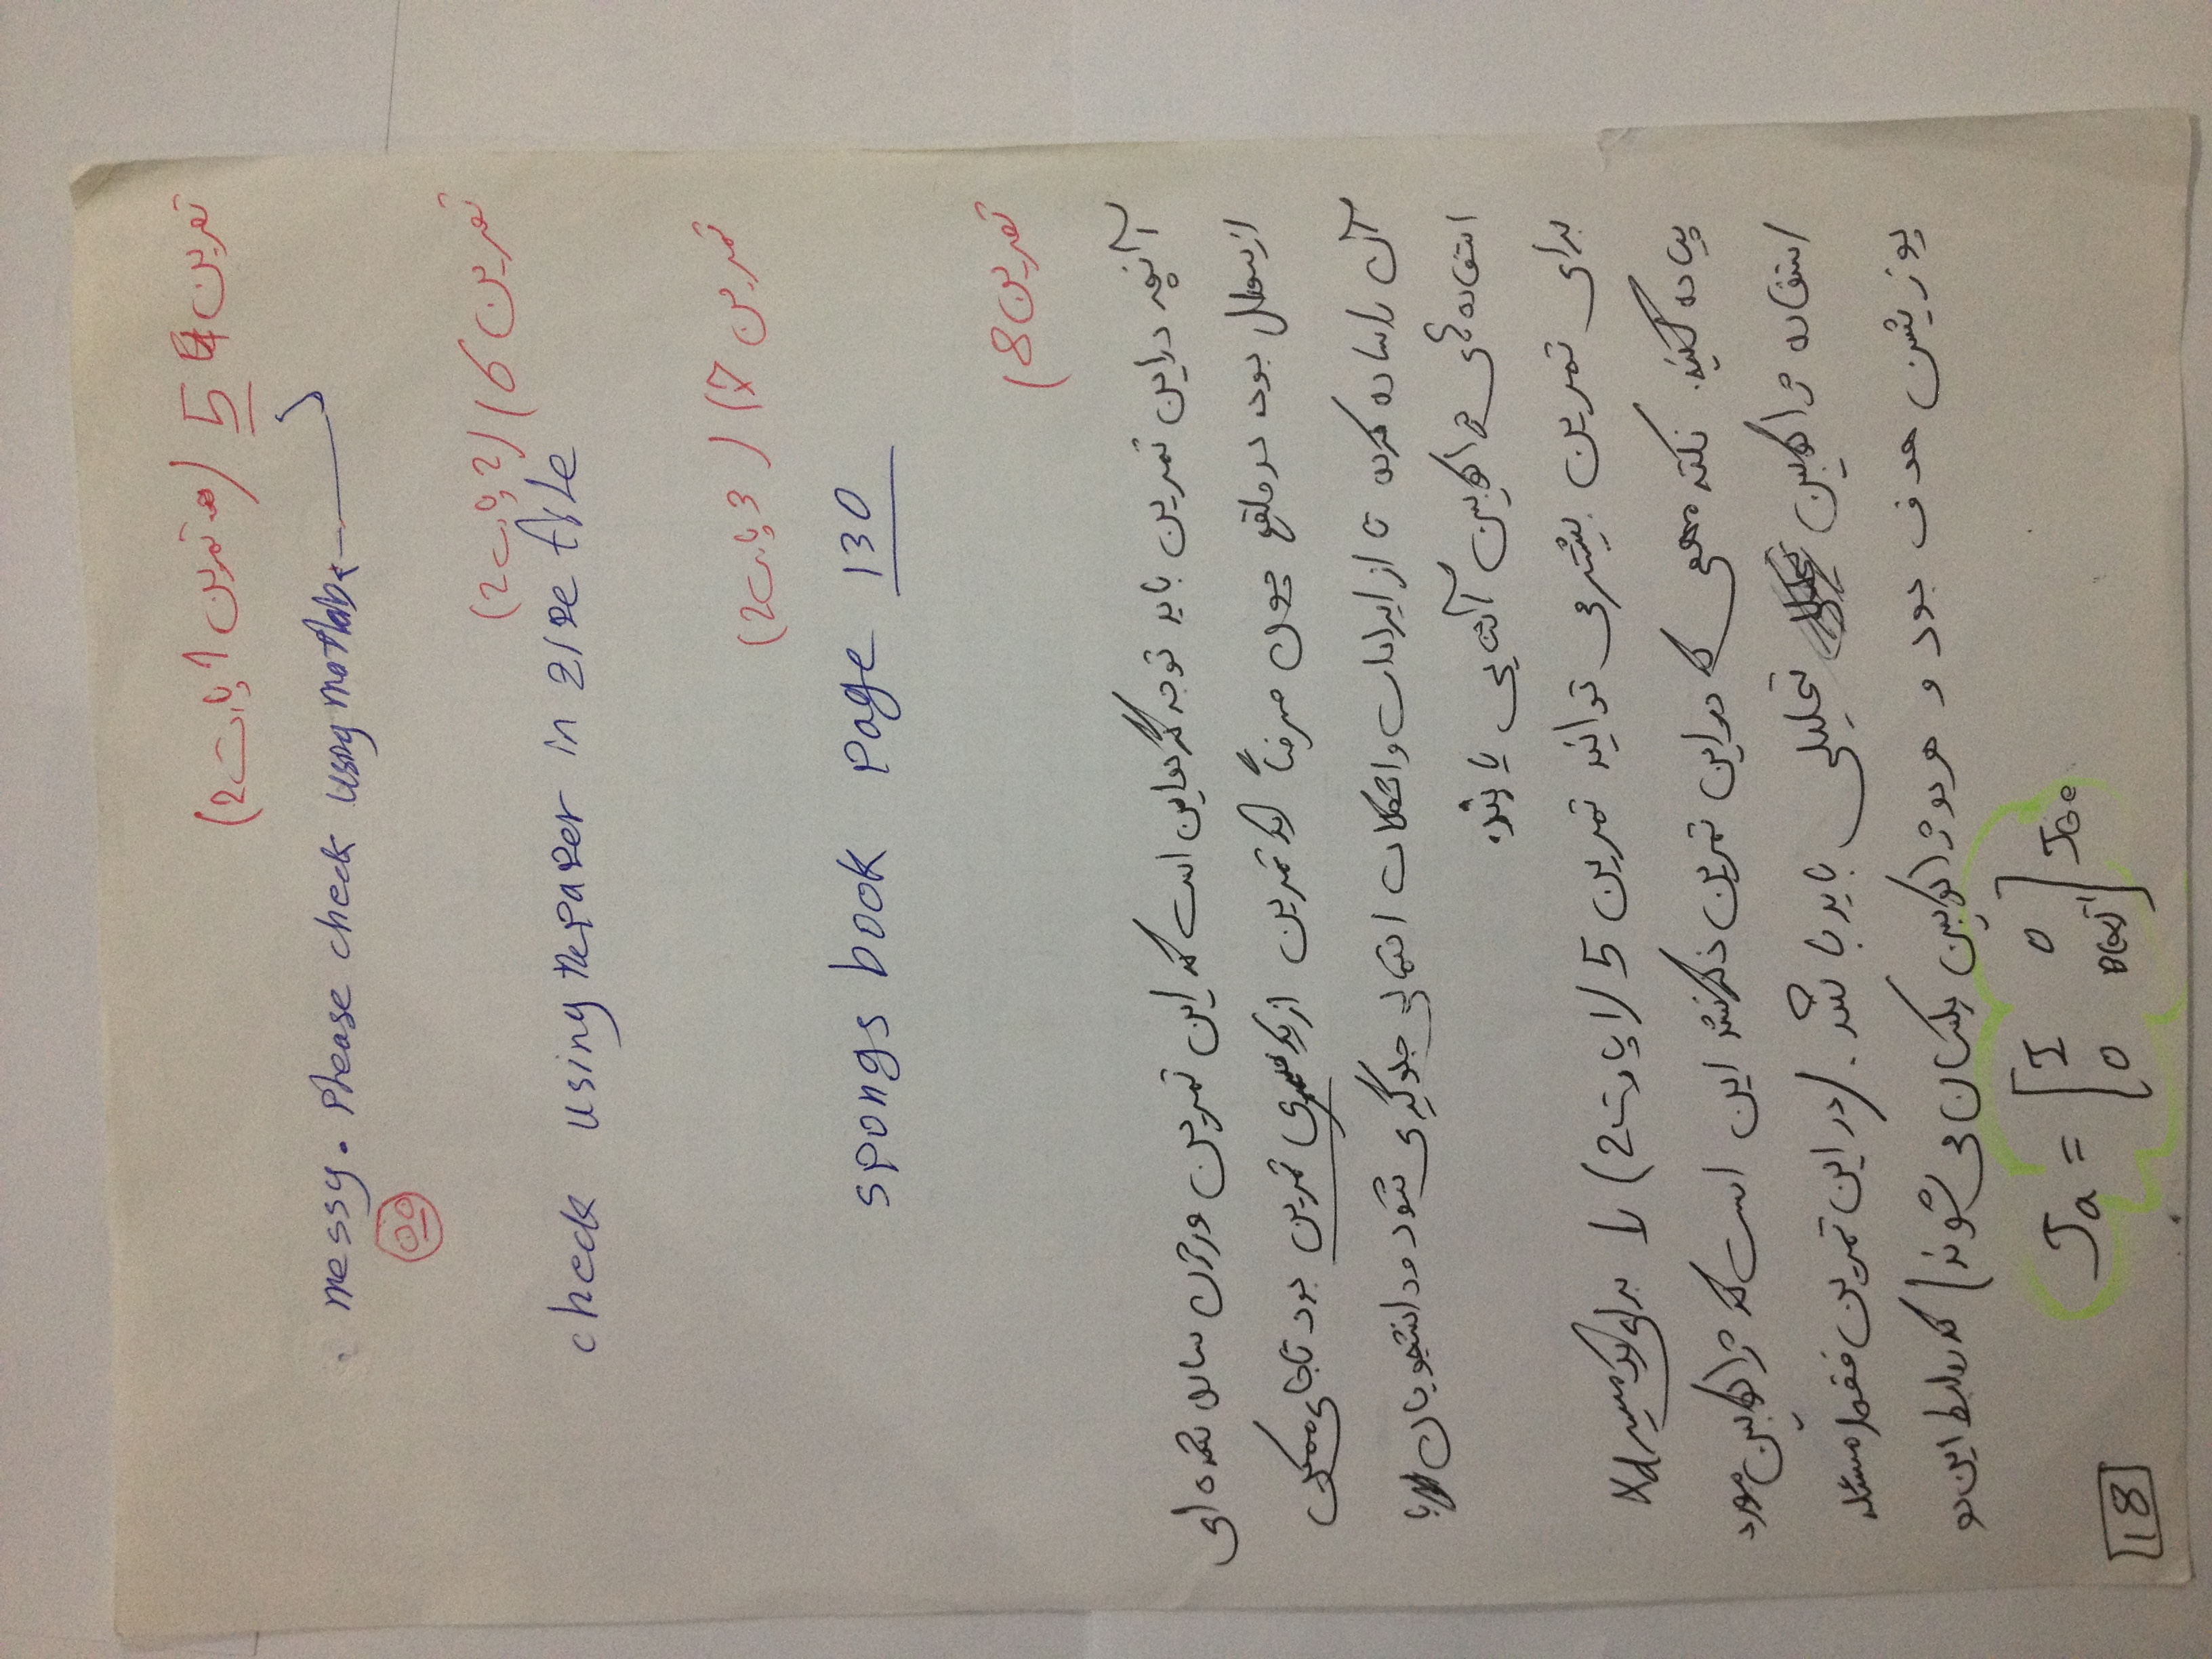 تمرین 5 (تمرین 1 پارت 2)
messy. Please check using matlab
تمرین 6) (2 پارت 2)
check using the paper in zipe file
تمرین 7) (3 پارت 2)
spongs book page 130
تمرین 8)
آنچه در این تمرین باید توجه گردد این است که این تمرین ورژن ساده شده ای
از سوال بود، در واقع چون صرفاً یک تمرین از یک سری تمرین بود تا جای ممکن
آن را ساده کرده تا از ایرادات و اشکالات احتمالی جلوگیری شود و دانشجویان با
استفاده های ژاکوبین آشنایی یابند.
برای تمرین بیشتر می توانید تمرین 5 (1 پارت 2) را برای یک مسیر Xd
پیاده کنید. نکته مهمی که در این تمرین ذکر نشد این است که ژاکوبین مورد
استفاده ژاکوبین تحلیلی باید باشد. (در این تمرین فقط مسئله
پوزیشن هدف بود و هر دو ژاکوبین یکسان می شوند) که روابط این دو
Ja = [I 0
0 B(α)⁻¹] JGe
18